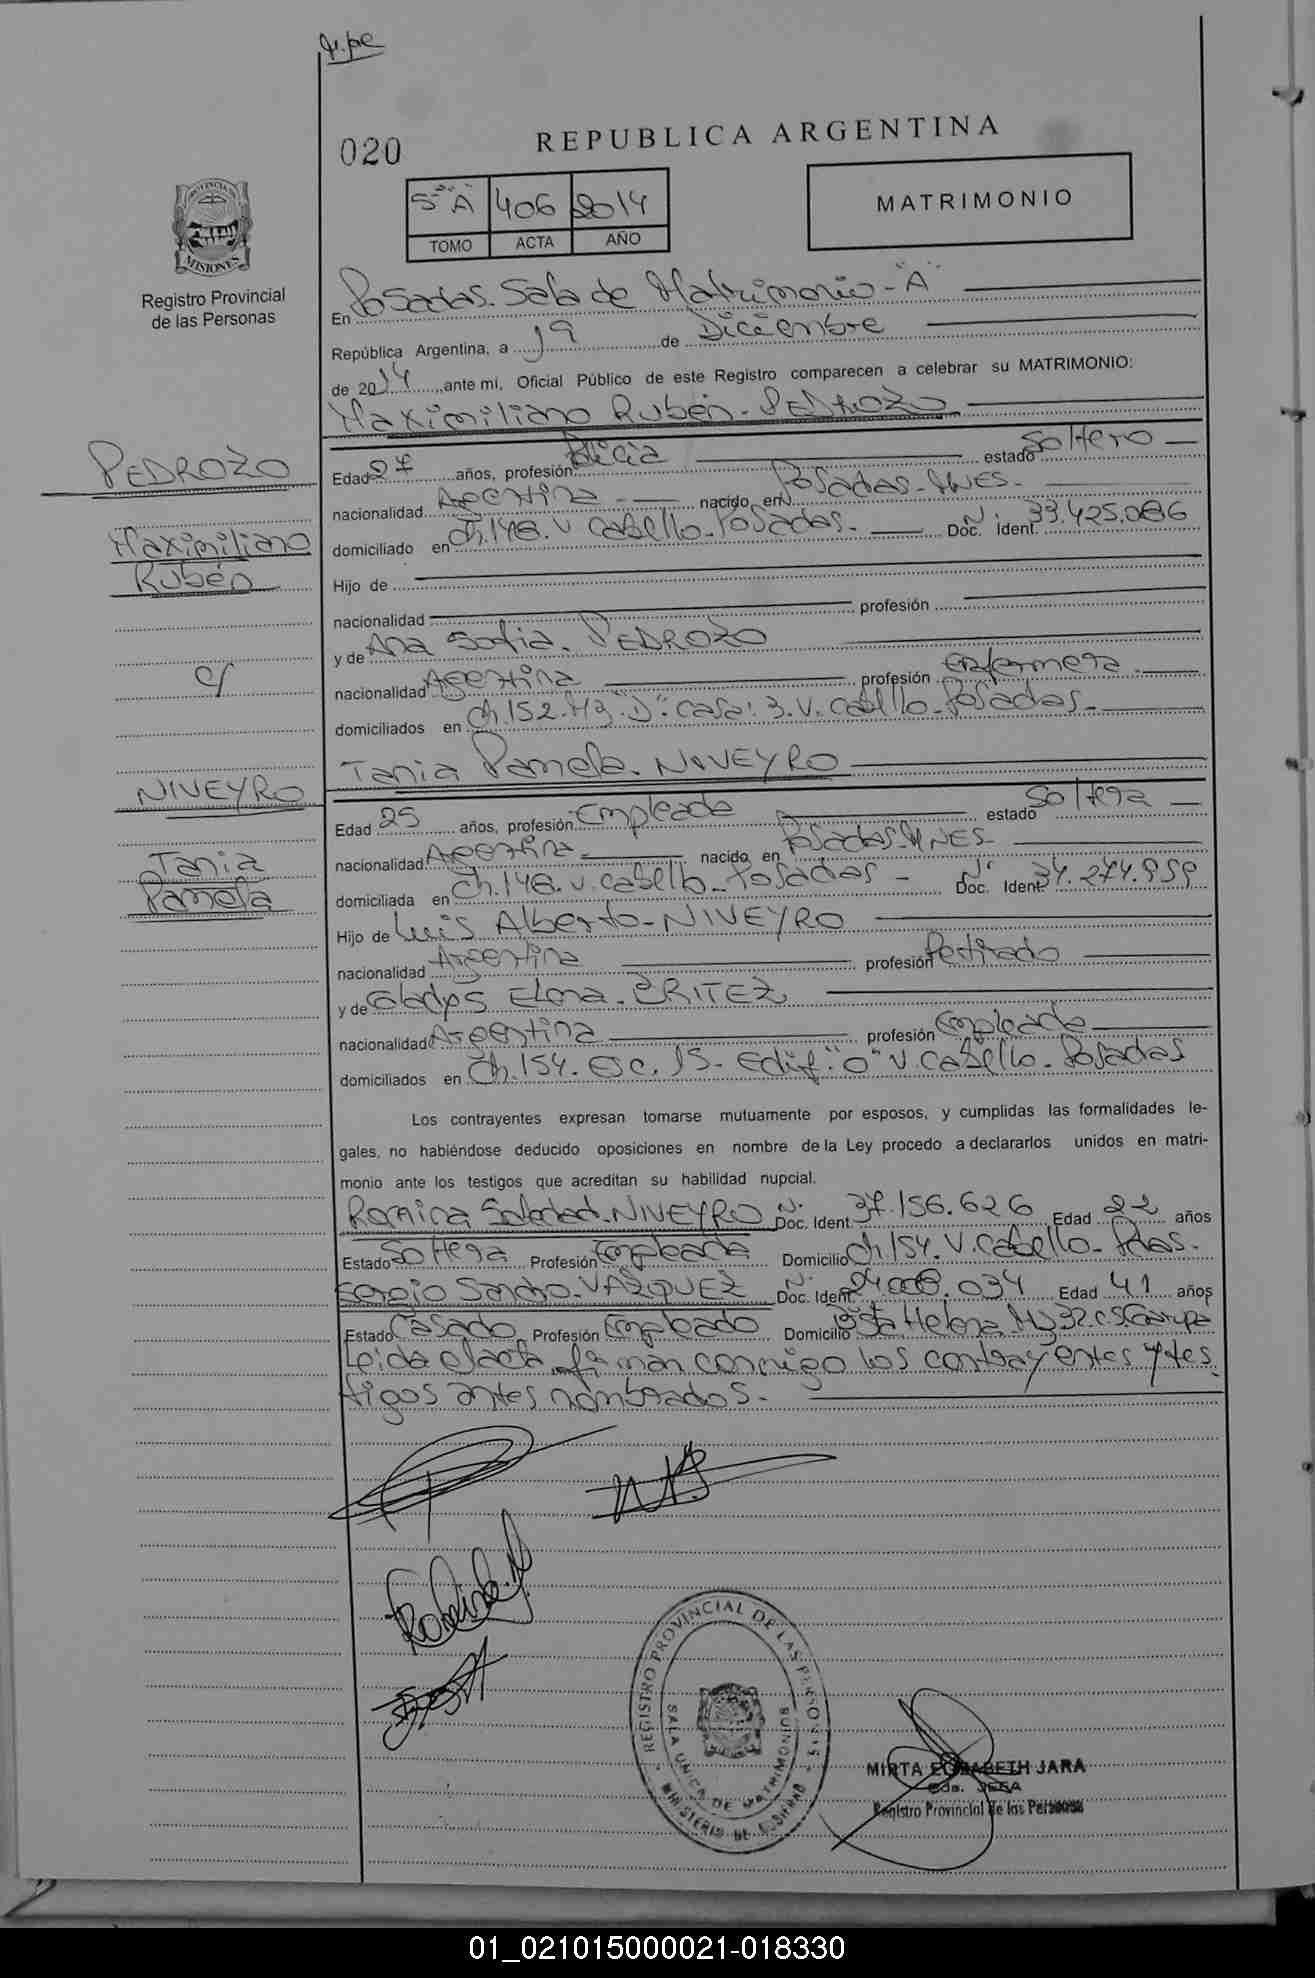 020
REPUBLICA ARGENTINA
5° "A" 406 2014
TOMO ACTA AÑO
MATRIMONIO
PROVINCIA DE
MISIONES
Registro Provincial
de las Personas
En Posadas. Sala de Matrimonio - "A"
República Argentina, a 19 de Diciembre
de 2014 ante mi, Oficial Público de este Registro comparecen a celebrar su MATRIMONIO:
Maximiliano Rubén - PEDROZO
PEDROZO
Maximiliano
Rubén
c/
NIVEYRO
Tania
Pamela
Edad 27 años, profesión Policia estado Soltero
nacionalidad Argentina nacido en Posadas - MNES.
domiciliado en Ch. 148. V. Cabello - Posadas. Doc. Ident. N° 33.425.086
Hijo de
nacionalidad profesión
y de Ana Sofia. PEDROZO
nacionalidad Argentina profesión Enfermera
domiciliados en Ch. 152. "D" casa: 3. V. Cabello - Posadas.
Tania Pamela. NIVEYRO
Edad 25 años, profesión Empleada estado Soltera
nacionalidad Argentina nacido en Posadas MNES.
domiciliada en Ch. 148. V. Cabello - Posadas - Doc. Ident. N° 34.274.959
Hijo de Luis Alberto - NIVEYRO
nacionalidad Argentina profesión Retirado
y de Gladys Elena. BRITEZ
nacionalidad Argentina profesión Empleada
domiciliados en Ch. 154. Esc. 15. Edif. "O" V. Cabello - Posadas
Los contrayentes expresan tomarse mutuamente por esposos, y cumplidas las formalidades le-
gales, no habiéndose deducido oposiciones en nombre de la Ley procedo a declararlos unidos en matri-
monio ante los testigos que acreditan su habilidad nupcial.
Romina Soledad. NIVEYRO Doc. Ident. N° 37.156.626 Edad 22 años
Estado Soltera Profesión Empleada Domicilio Ch. 154. V. Cabello - Pdas.
Sergio Sandro. VAZQUEZ Doc. Ident. N° 24.008.034 Edad 41 años
Estado Casado Profesión Empleado Domicilio Sta Helena
Leida el acta, firman conmigo los contrayentes y tes
tigos antes nombrados.
REGISTRO PROVINCIAL DE LAS PERSONAS
SALA UNICA DE MATRIMONIOS
MINISTERIO DE GOBIERNO
MIRTA ELISABETH JARA
JEFA
Registro Provincial de las Personas
01_021015000021-018330